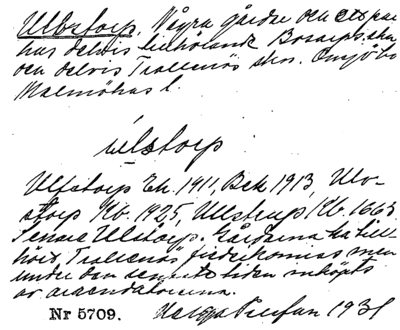 Ulvstorp. Några gårdar och ett par
hus delvis tillhörande Bosarps skn
och delvis Trollenäs skn. Onsjö hd
Malmöhus l.
ulstorp
Ulfstorp Ek. 1911, Bek 1913, Ulv-
storp Kb. 1925, Ullstrup, Kb. 1663.
Senare Ulstorp. Gårdarna ha till-
hört Trollenäs fideikomiss men
under den senaste tiden inköpts
av arrendatorerna.
Nr 5709. 1931